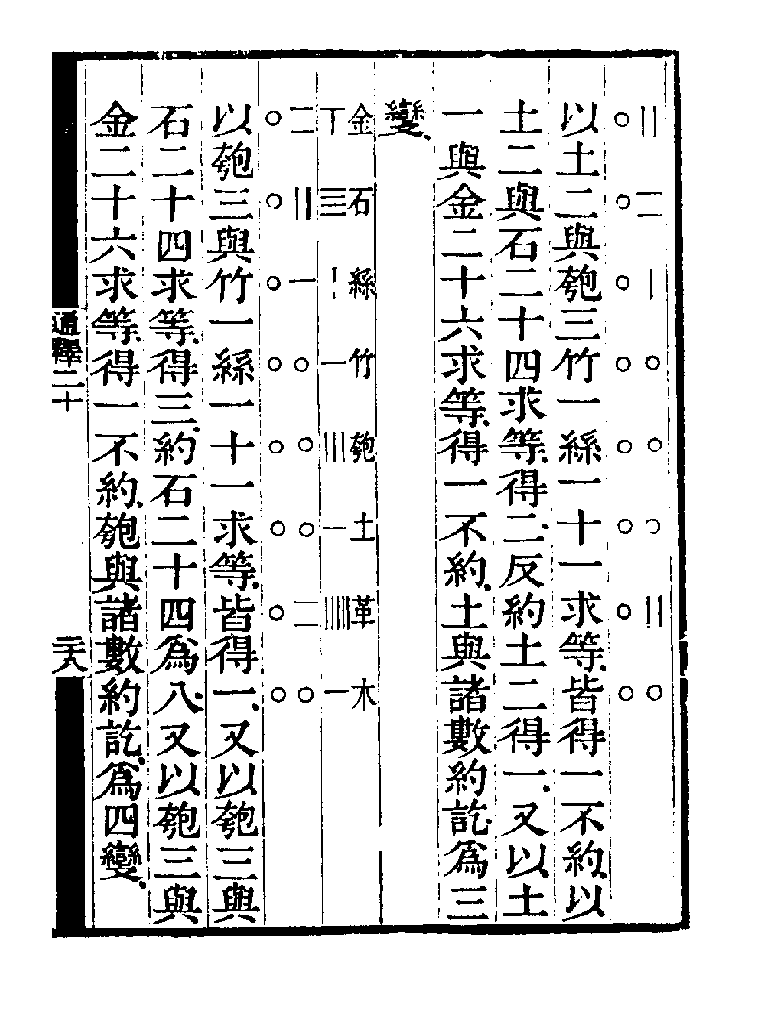 || 二 | ○ ○ ○ || ○
○ ○ ○ ○ ○ ○ ○ ○
以土二與匏三竹一絲一十一求等皆得一不約以
土二與石二十四求等得二反約土二得一又以土
一與金二十六求等得一不約土與諸數約訖爲三
變
金石絲竹匏土革木
丅 亖 | 一 ||| 一 ||||| 一
二 || 一 ○ ○ ○ 二 ○
○ ○ ○ ○ ○ ○ ○ ○
以匏三與竹一絲一十一求等皆得一又以匏三與
石二十四求等得三約石二十四爲八又以匏三與
金二十六求等得一不約匏與諸數約訖爲四變
通釋二十